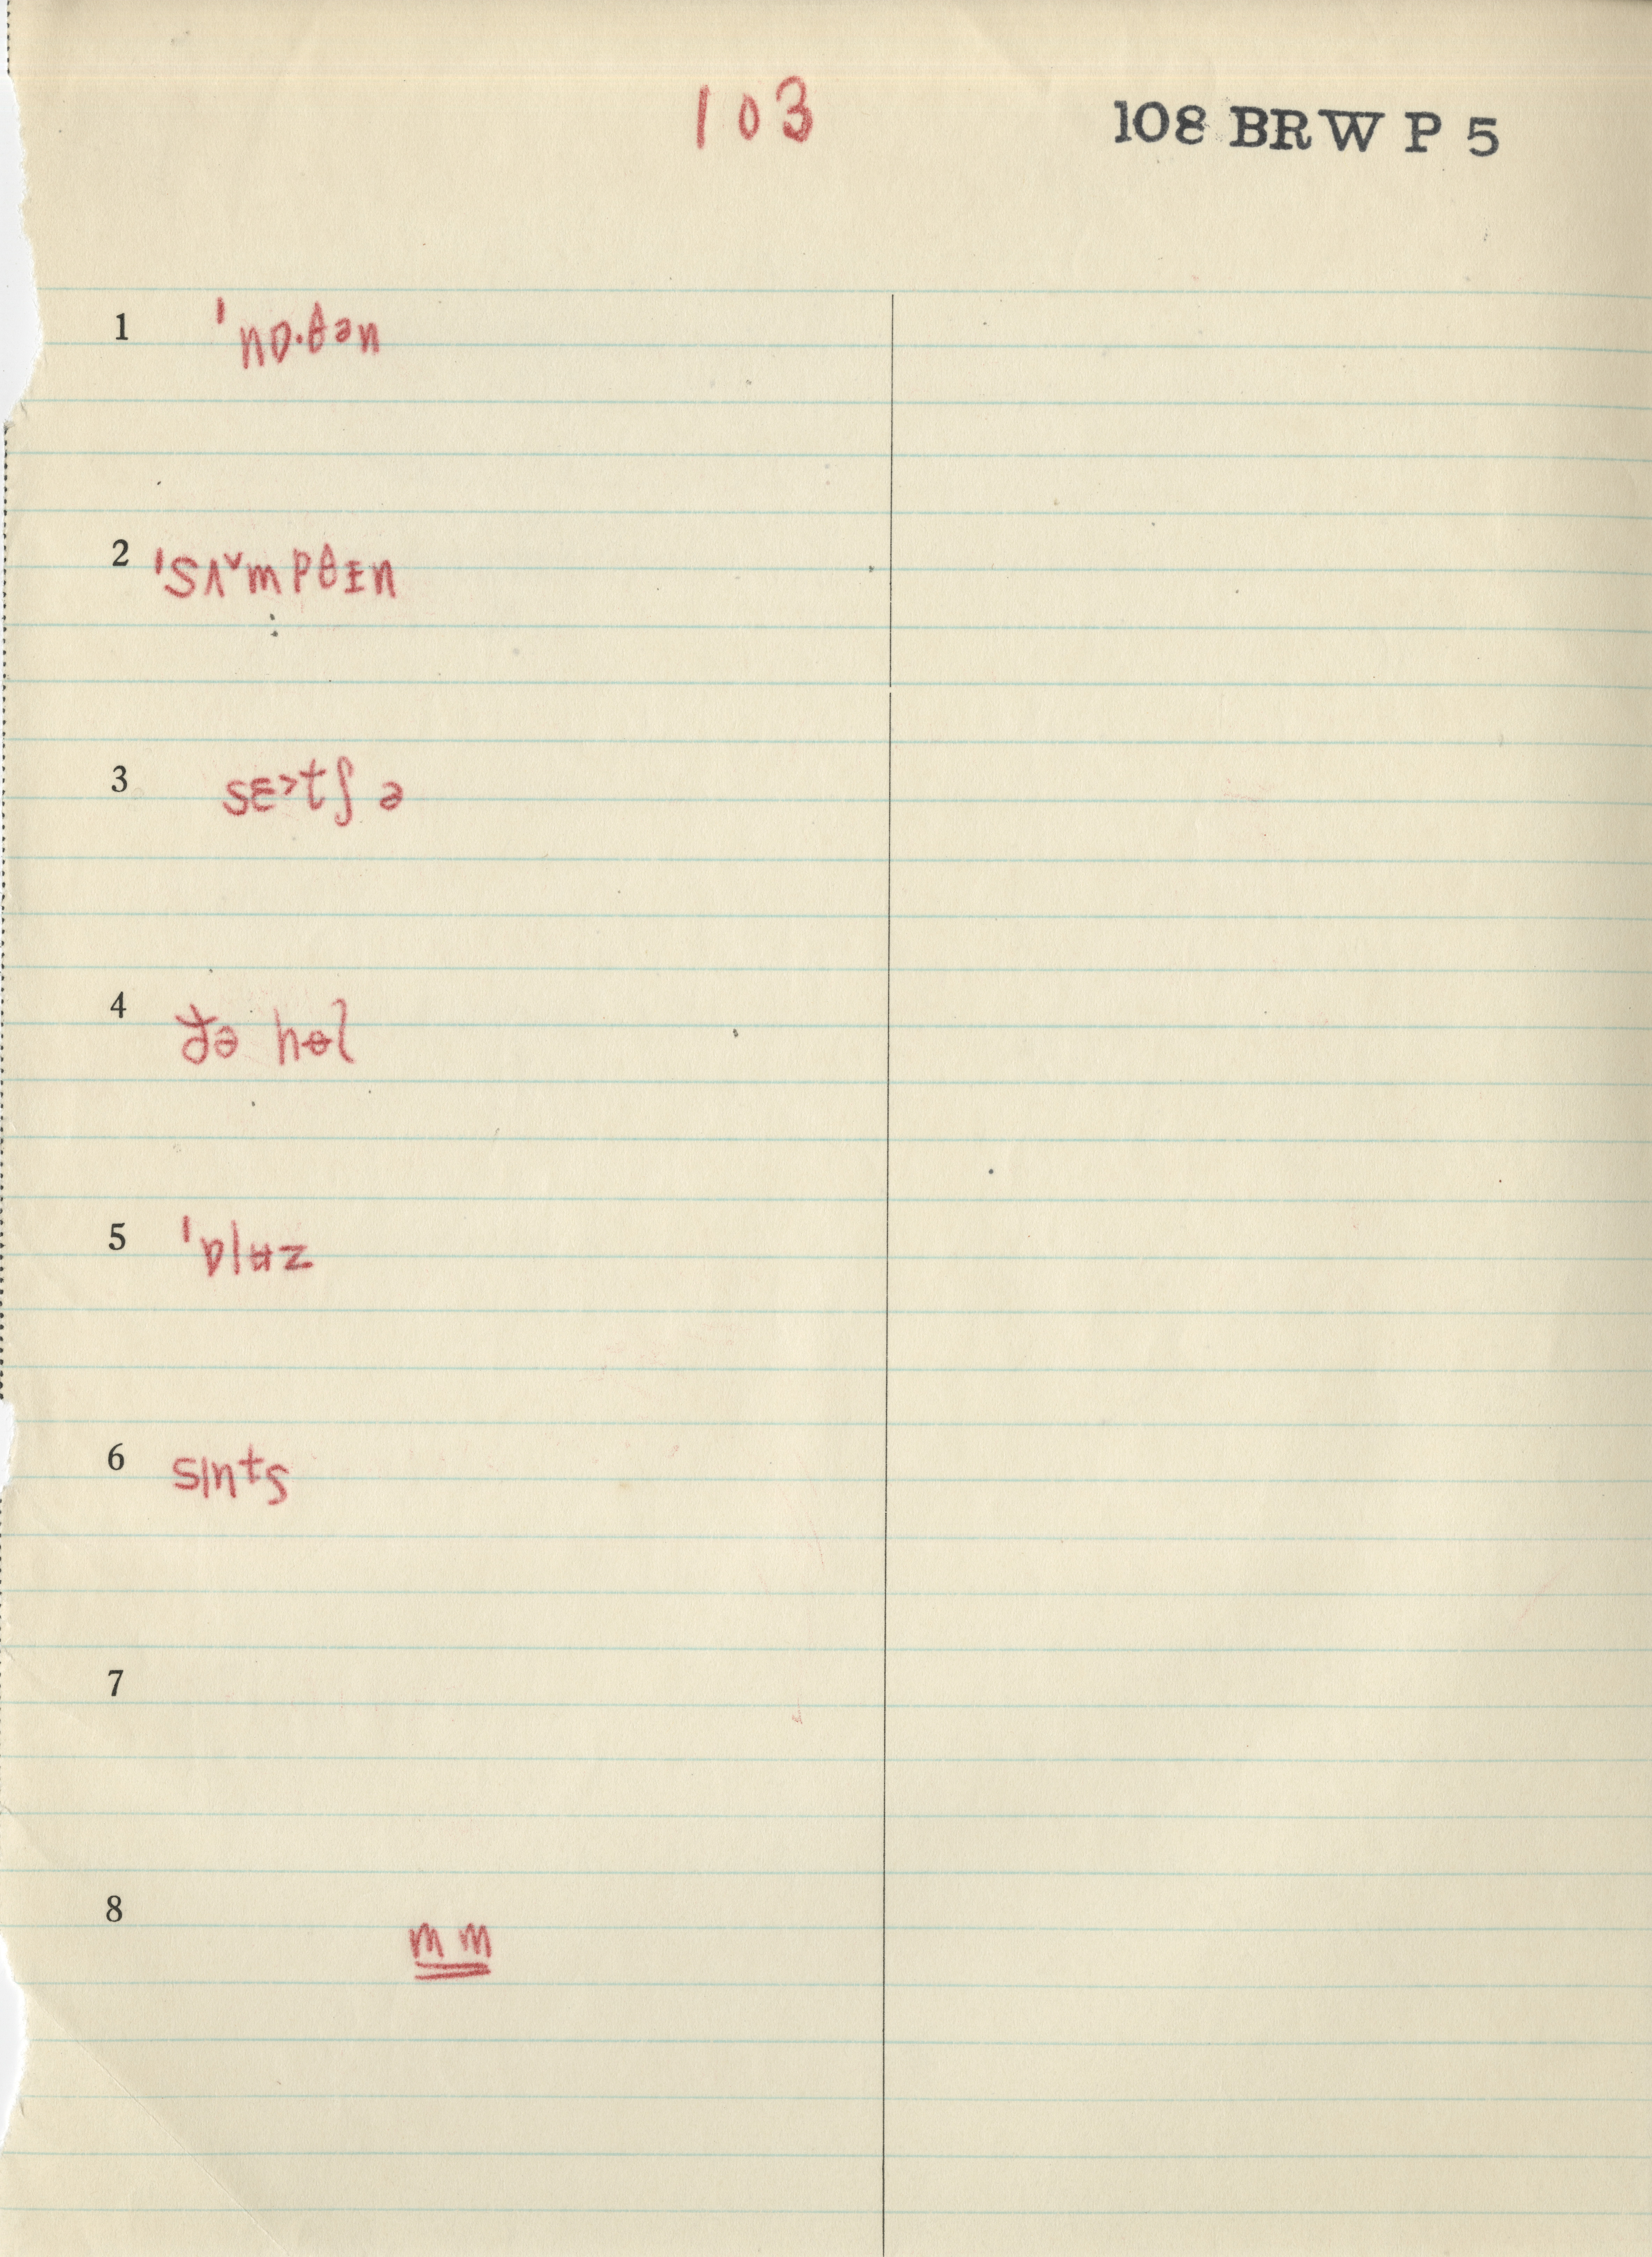 103
108 BRW P 5
1 ˈnɒ·θən
2 ˈsʌ˅mpθɪ̵n
3 sɛ˃tʃ ə
4 ðə hɵl
5 ˈɒlʉz
6 sɪnts
7
8
mm